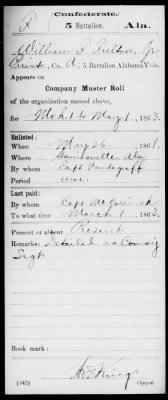 Confederate.
F 5 Battalion. Ala.
William F. Fulton, Jr
Private, Co. A, 5 Battalion Alabama Vols.
Appears on
Company Muster Roll
of the organization named above,
for Mch 1 to May 1, 1863.
Enlisted:
When May 26, 1861.
Where Gainesville Ala
By whom Capt Vandegriff
Period war
Last paid:
By whom Capt McCormick
To what time March 1, 1863.
Present or absent Present
Remarks: Detailed as Comsy
Sergt
Book mark:
(642) Copyist.